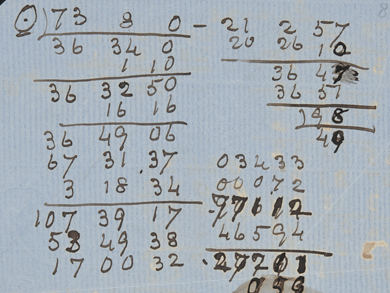 ⊙ ) 73 8 0 -
36 34 0
1 10
36 32 50
16 16
36 49 06
67 31 37
3 18 34
107 39 17
53 49 38
17 00 32
21 2 57
20 26 10
36 47
36 51
) 98
49
03433
00072
77612
46594
27201